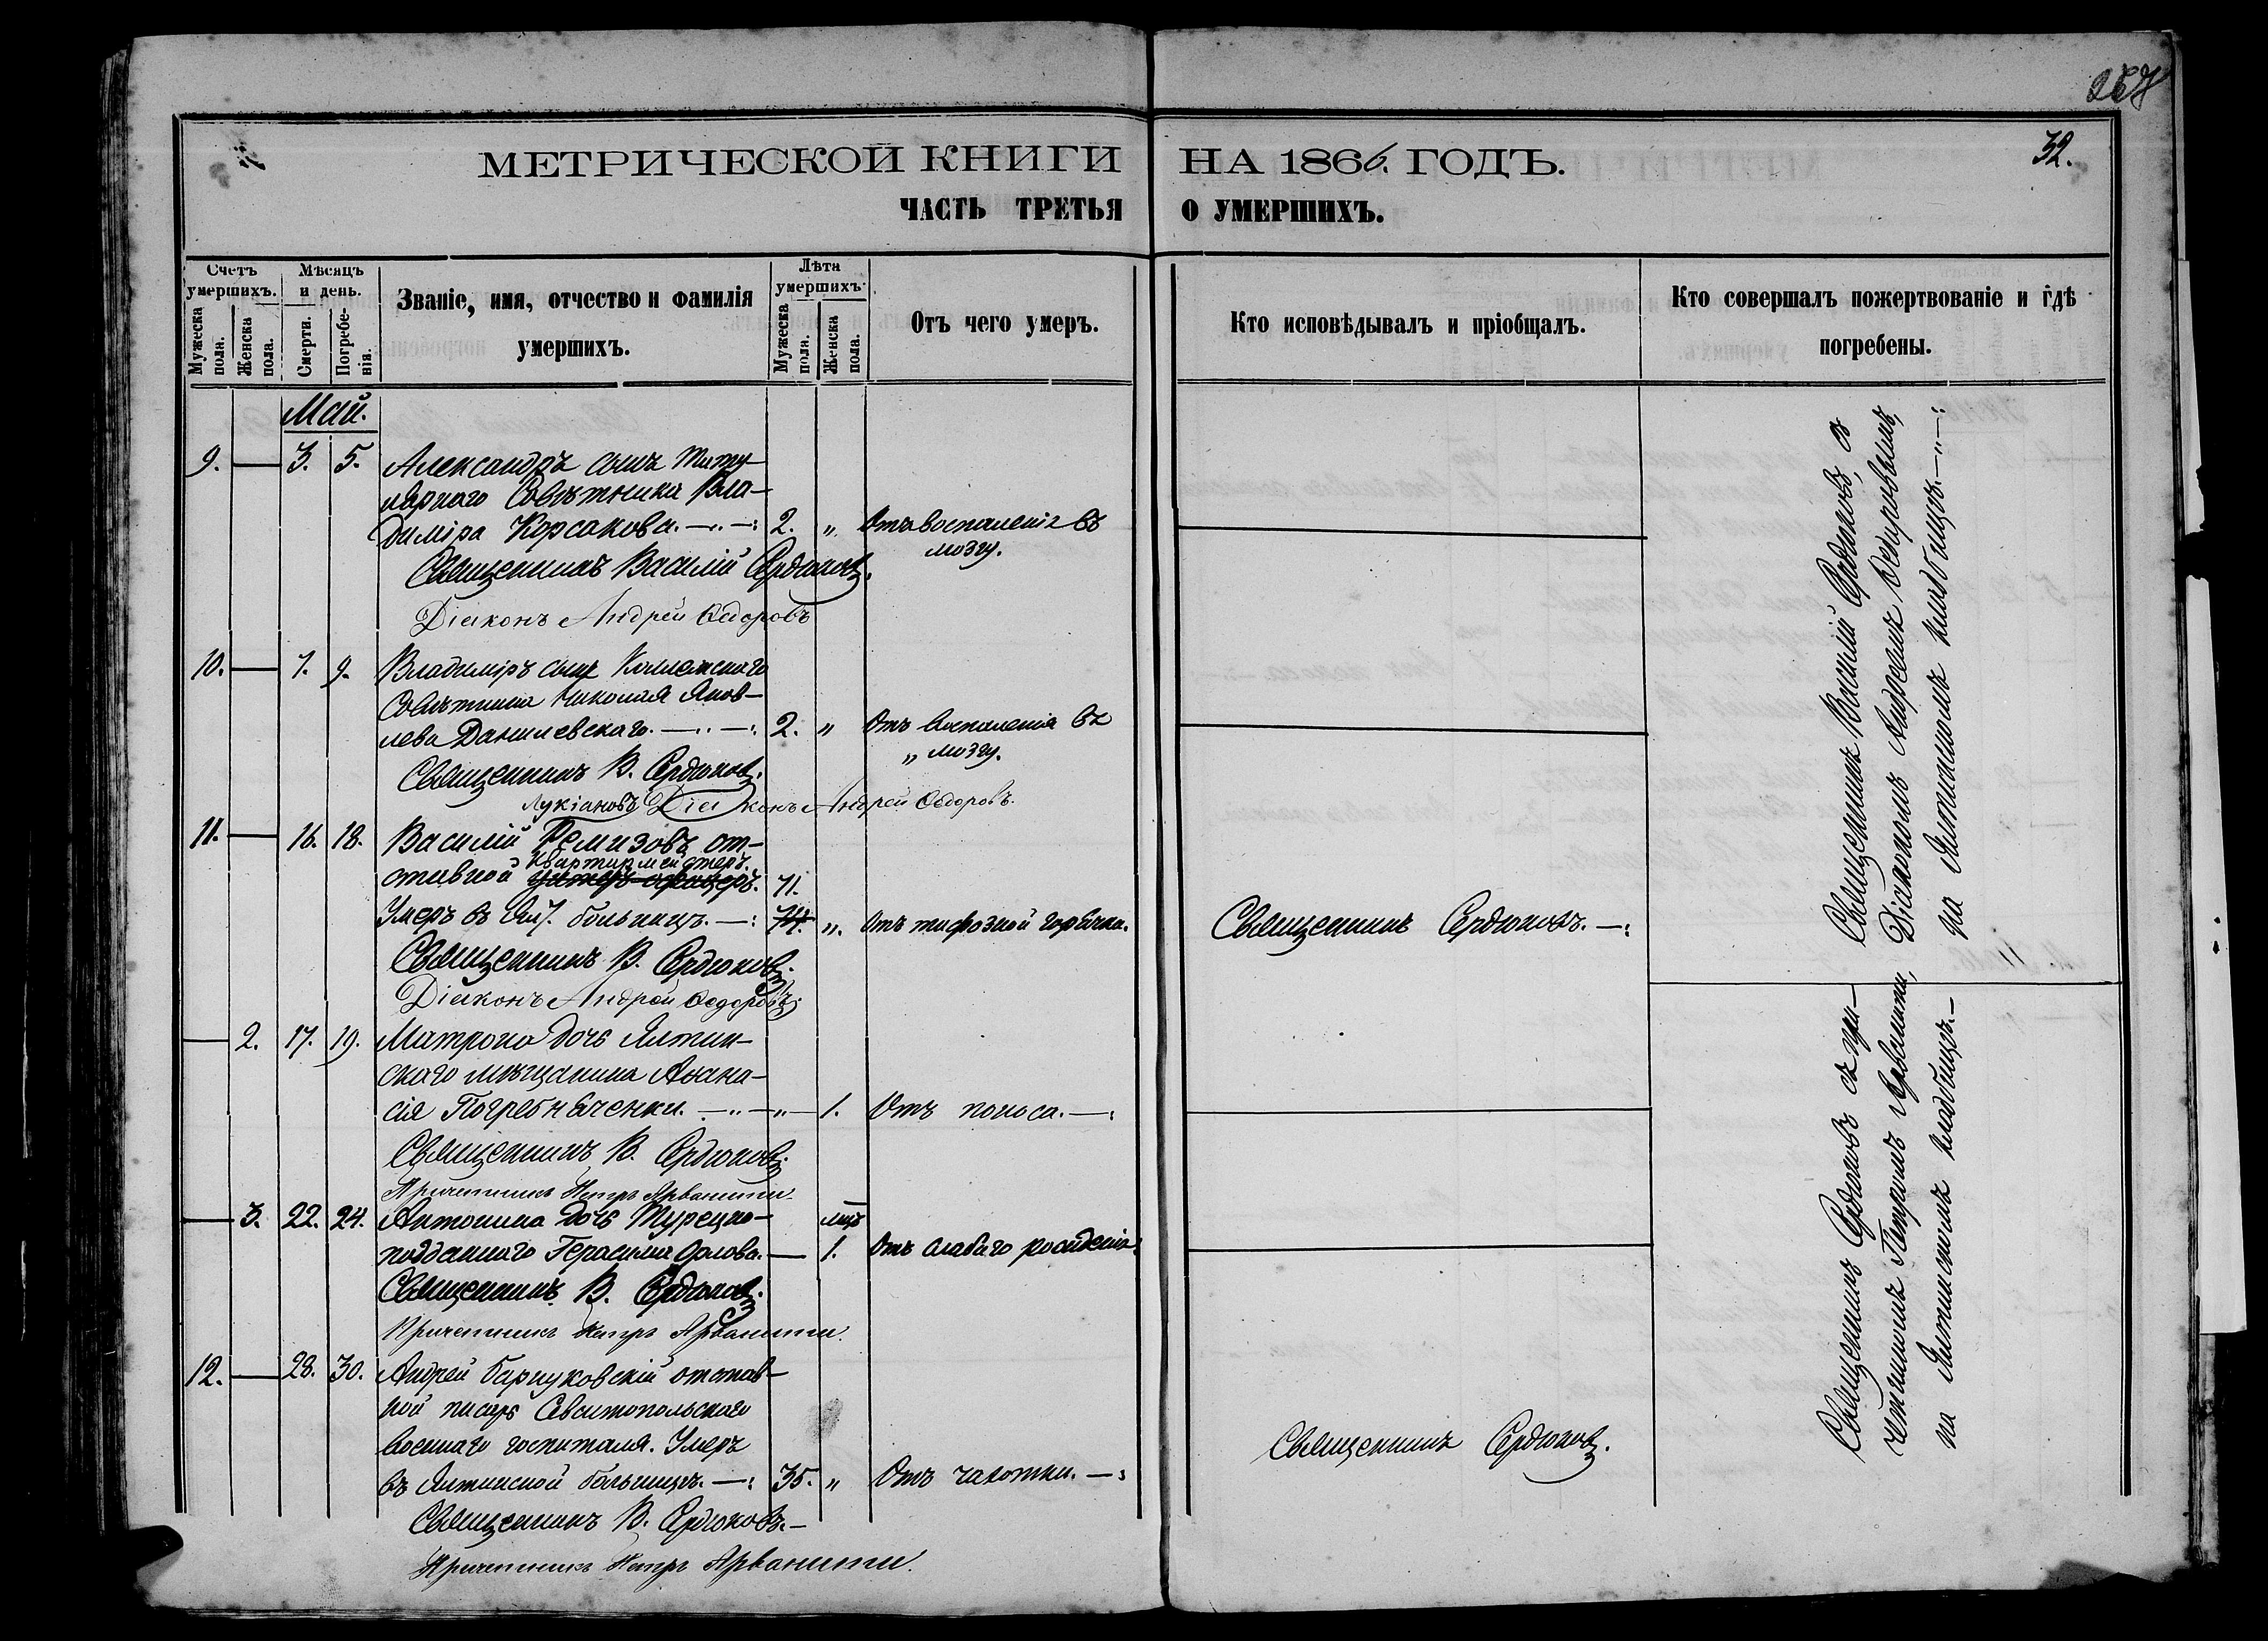 267
32.
МЕТРИЧЕСКОЙ КНИГИ НА 1866. ГОДЪ.
ЧАСТЬ ТРЕТЬЯ О УМЕРШИХЪ.
Счетъ умершихъ.
Мужеска пола.
Женска пола.
Мѣсяцъ и день.
Смерти.
Погребенія.
Званіе, имя, отчество и фамилія
умершихъ.
Лѣта умершихъ.
Мужеска пола.
Женска пола.
Отъ чего умеръ.
Кто исповѣдывалъ и пріобщалъ.
Кто совершалъ пожертвованіе и гдѣ
погребены.
Май.
9. — 3. 5. Александръ сынъ Титу-
лярнаго Совѣтника Вла-
диміра Корсакова. — „ —: 2. „ Отъ воспаленія въ
мозгу.
Священникъ Василій Сердюковъ.
Діаконъ Андрей Ѳедоровъ
10. — 7. 9. Владиміръ сынъ Коллежскаго
Совѣтника Николая Яков-
лева Данилевскаго. — „ —: 2. „ Отъ воспаленія въ
„ мозгу.
Священникъ В. Сердюковъ.
Діаконъ Андрей Ѳедоровъ.
Лукіановъ
11. — 16. 18. Василій Ремизовъ от-
квартирмейстеръ.
ставной унтеръ-офицеръ. 71.
Умеръ въ Ял. больницѣ. —: „ Отъ тифозной горячки.
Священникъ Сердюковъ. —:
Священникъ В. Сердюковъ.
Діаконъ Андрей Ѳедоровъ.
— 2. 17. 19. Матрона дочь Ялтин-
скаго мѣщанина Аѳана-
сія Погребняченки. — „ — „ — 1. Отъ поноса. —:
Священникъ В. Сердюковъ.
Причетникъ Петръ Арванити.
— 3. 22. 24. Антонина дочь Турецко- мцъ
подданнаго Герасима Орлова. — 1. Отъ слабаго рожденія.
Священникъ В. Сердюковъ.
Причетникъ Петръ Арванити.
12. — 28. 30. Андрей Барцуковскій отстав-
ной писарь Севастопольскаго
военнаго госпиталя. Умеръ
въ Ялтинской больницѣ. —: 35. „ Отъ чахотки. —:
Священникъ Сердюковъ.
Священникъ В. Сердюковъ. —
Причетникъ Петръ Арванити.
Священникъ Василій Сердюковъ, съ
Діакономъ Андреемъ
на Ялтинскомъ кладбищѣ. — „ —:
Священникъ Сердюковъ съ при-
четникомъ Петромъ Арванити,
на Ялтинскомъ кладбищѣ. —